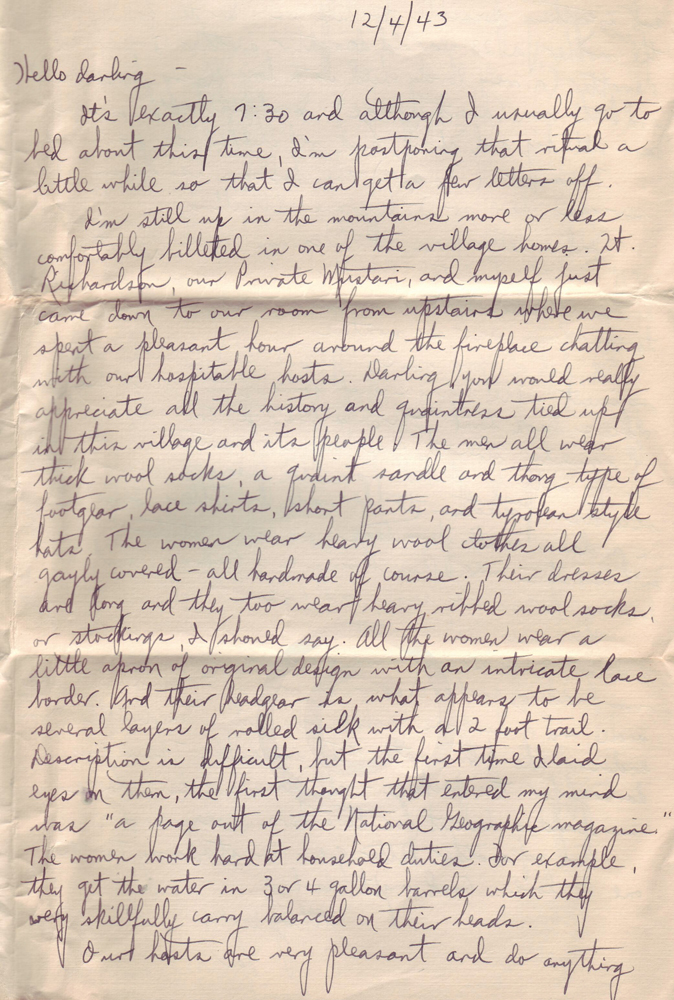 12/4/43
Hello darling -
It's exactly 7:30 and although I usually go to
bed about this time, I'm postponing that ritual a
little while so that I can get a few letters off.
I'm still up in the mountains more or less
comfortably billeted in one of the village homes. Lt.
Richardson, our Private Mustari, and myself just
came down to our room from upstairs where we
spent a pleasant hour around the fireplace chatting
with our hospitable hosts. Darling, you would really
appreciate all the history and quaintness tied up
in this village and its people. The men all wear
thick wool socks, a quaint sandle and thong type of
footgear, lace shirts, short pants, and tyrolean style
hats. The women wear heavy wool clothes all
gayly covered - all handmade of course. Their dresses
are long and they too wear heavy ribbed wool socks,
or stockings, I should say. All the women wear a
little apron of original design with an intricate lace
border. And their headgear is what appears to be
several layers of rolled silk with a 2 foot trail.
Description is difficult, but the first time I laid
eyes on them, the first thought that entered my mind
was "a page out of the National Geographic magazine."
The women work hard at household duties. For example,
they get the water in 3 or 4 gallon barrels which they
very skillfully carry balanced on their heads.
Our hosts are very pleasant and do anything